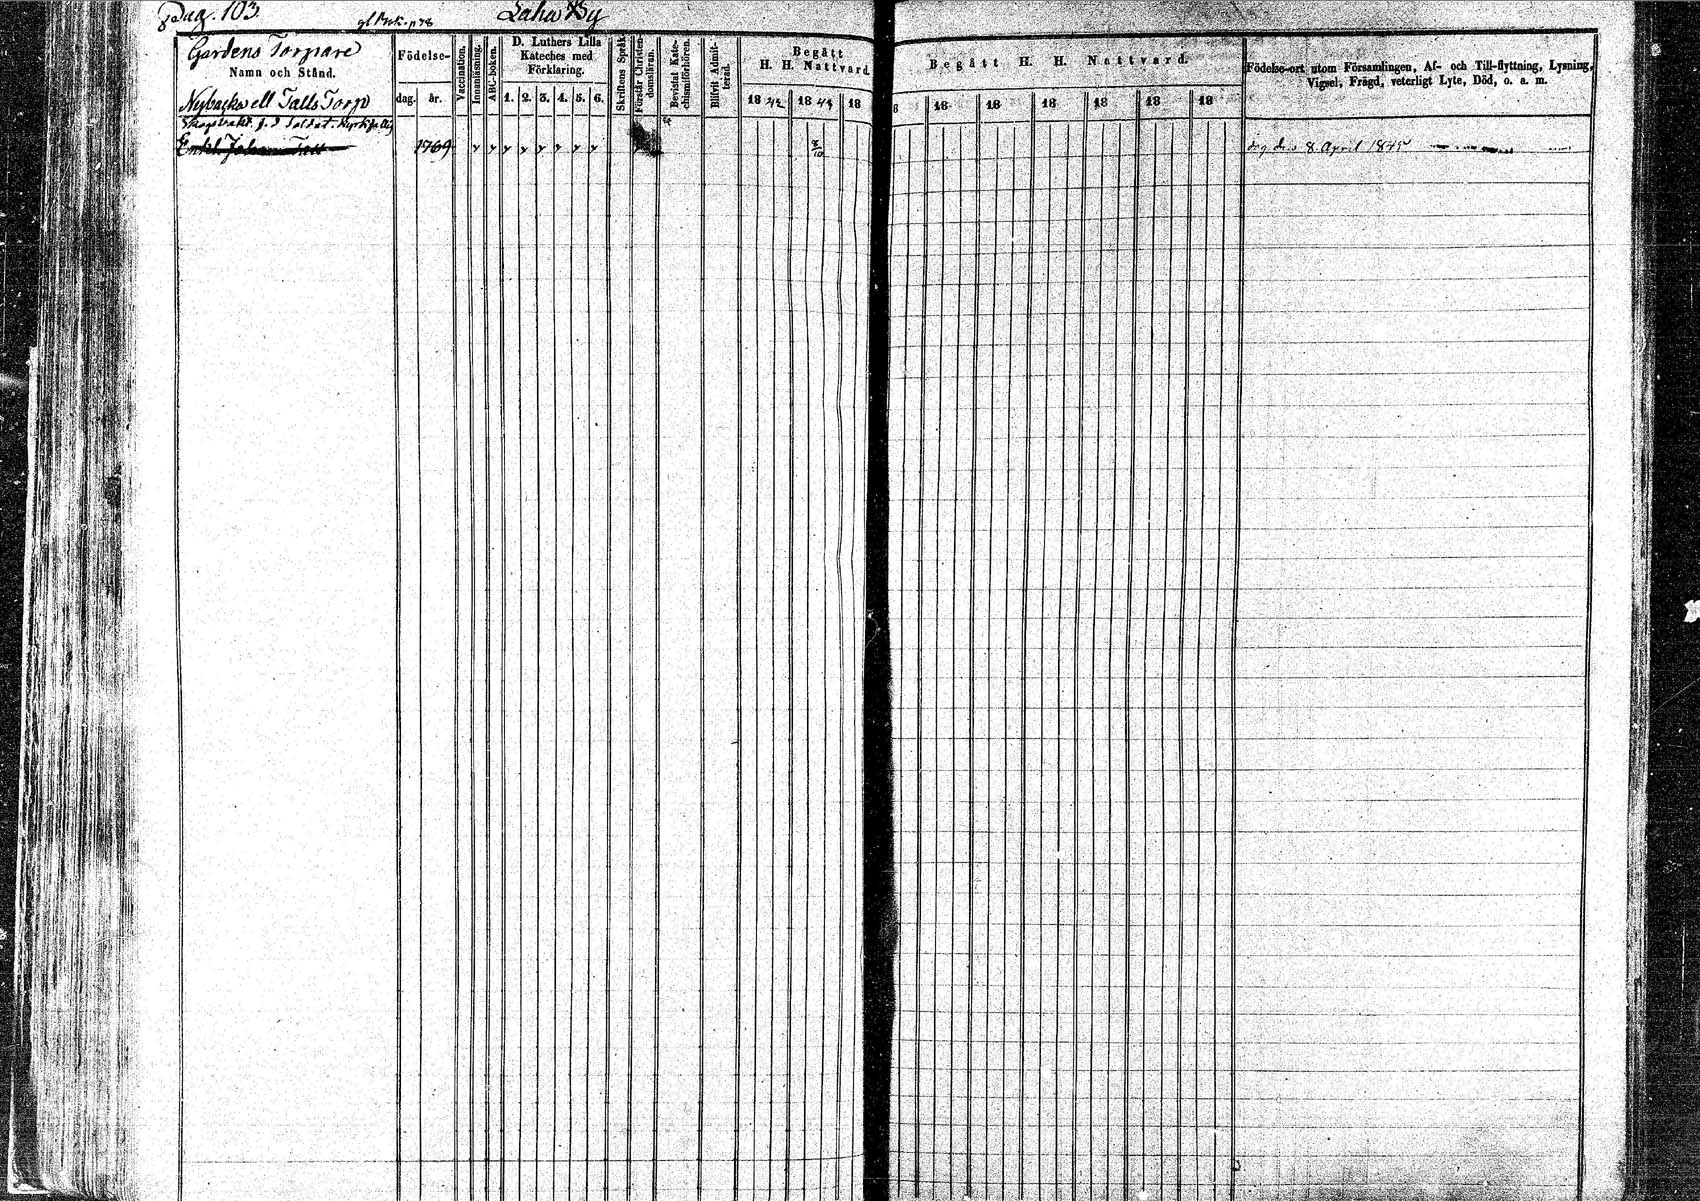 Pag. 103.
gl. Bok. p 78
Laha By
Gårdens Torpare
Namn och Stånd.
Nybacka ell Talls Torp
Födelse-
dag.
år.
Vaccination.
Innanläsning.
ABC-boken.
D. Luthers Lilla
Kateches med
Förklaring.
1. 2. 3. 4. 5. 6.
Skriftens Språk.
Förstår Christen-
domsläran.
Bevistat Kate-
chismiförhören.
Blifvit Admit-
terad.
Begått
H. H. Nattvard
18 18 18
Begått H. H. Nattvard.
8 18 18 18 18 18 18
Födelse-ort utom Församlingen, Af- och Till-flyttning, Lysning,
Vigsel, Frägd, veterligt Lyte, Död, o. a. m.
f. d. Soldat.
Enkl. Johan Tall
1769
8 April